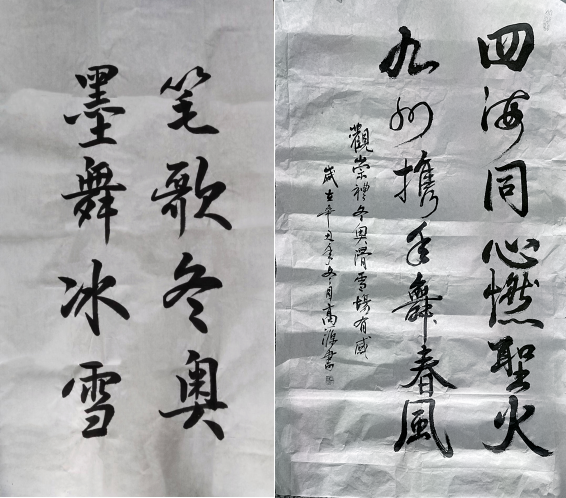 笔歌冬奥
墨舞冰雪
四海同心燃聖火
九州携手舞春風
觀崇禮冬奥滑雪場有感
歲在辛丑年冬月高源書